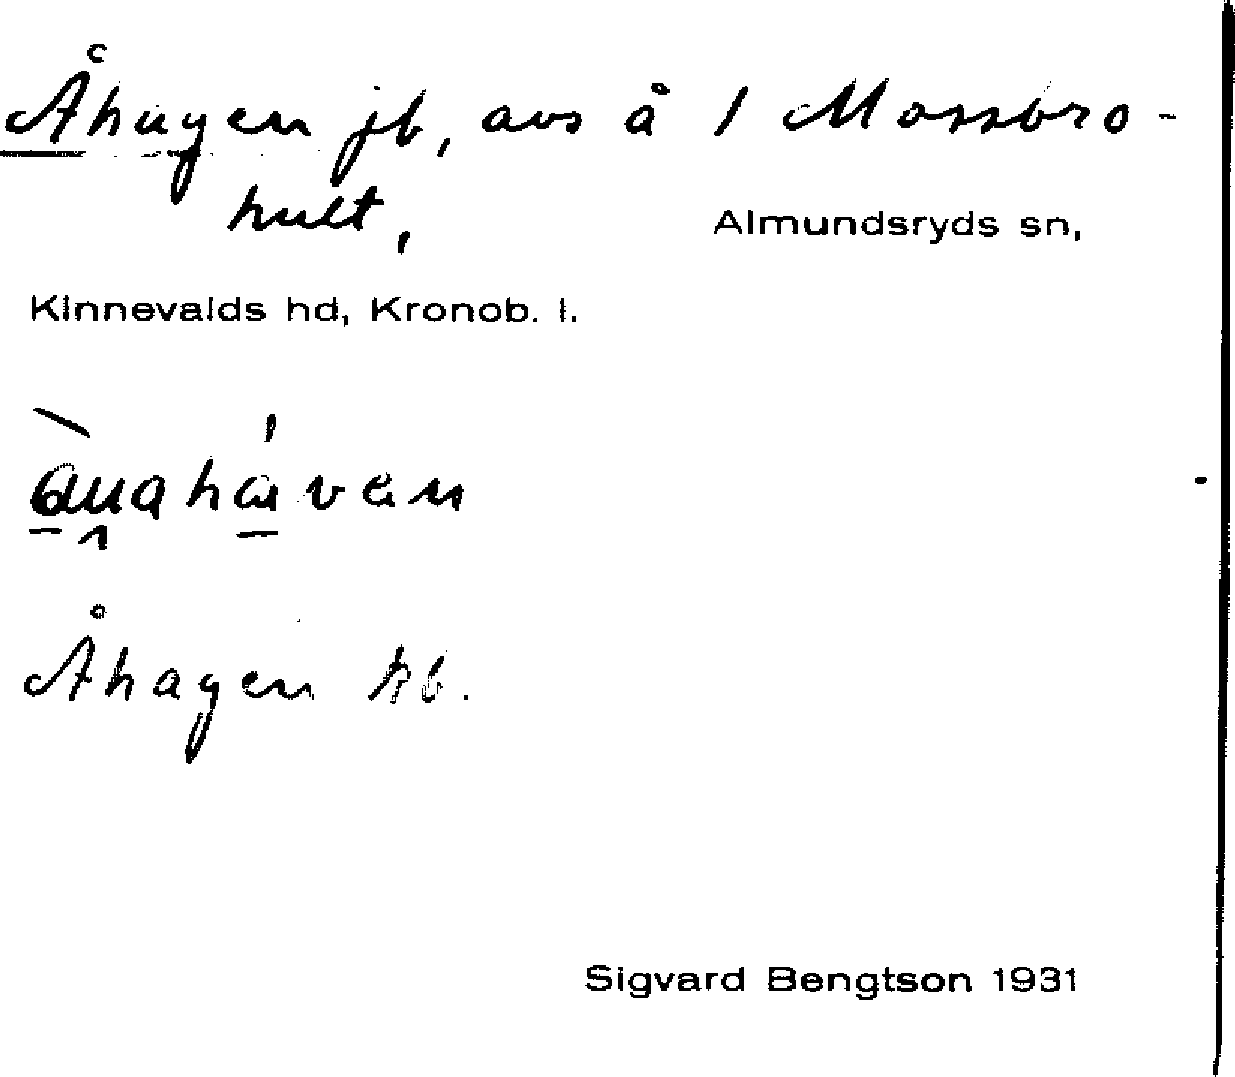 Åhagen jb, avs å 1 Mossbro-
hult,
Almundsryds sn,
Kinnevalds hd, Kronob. l.
Åhagen kb.
Sigvard Bengtson 1931